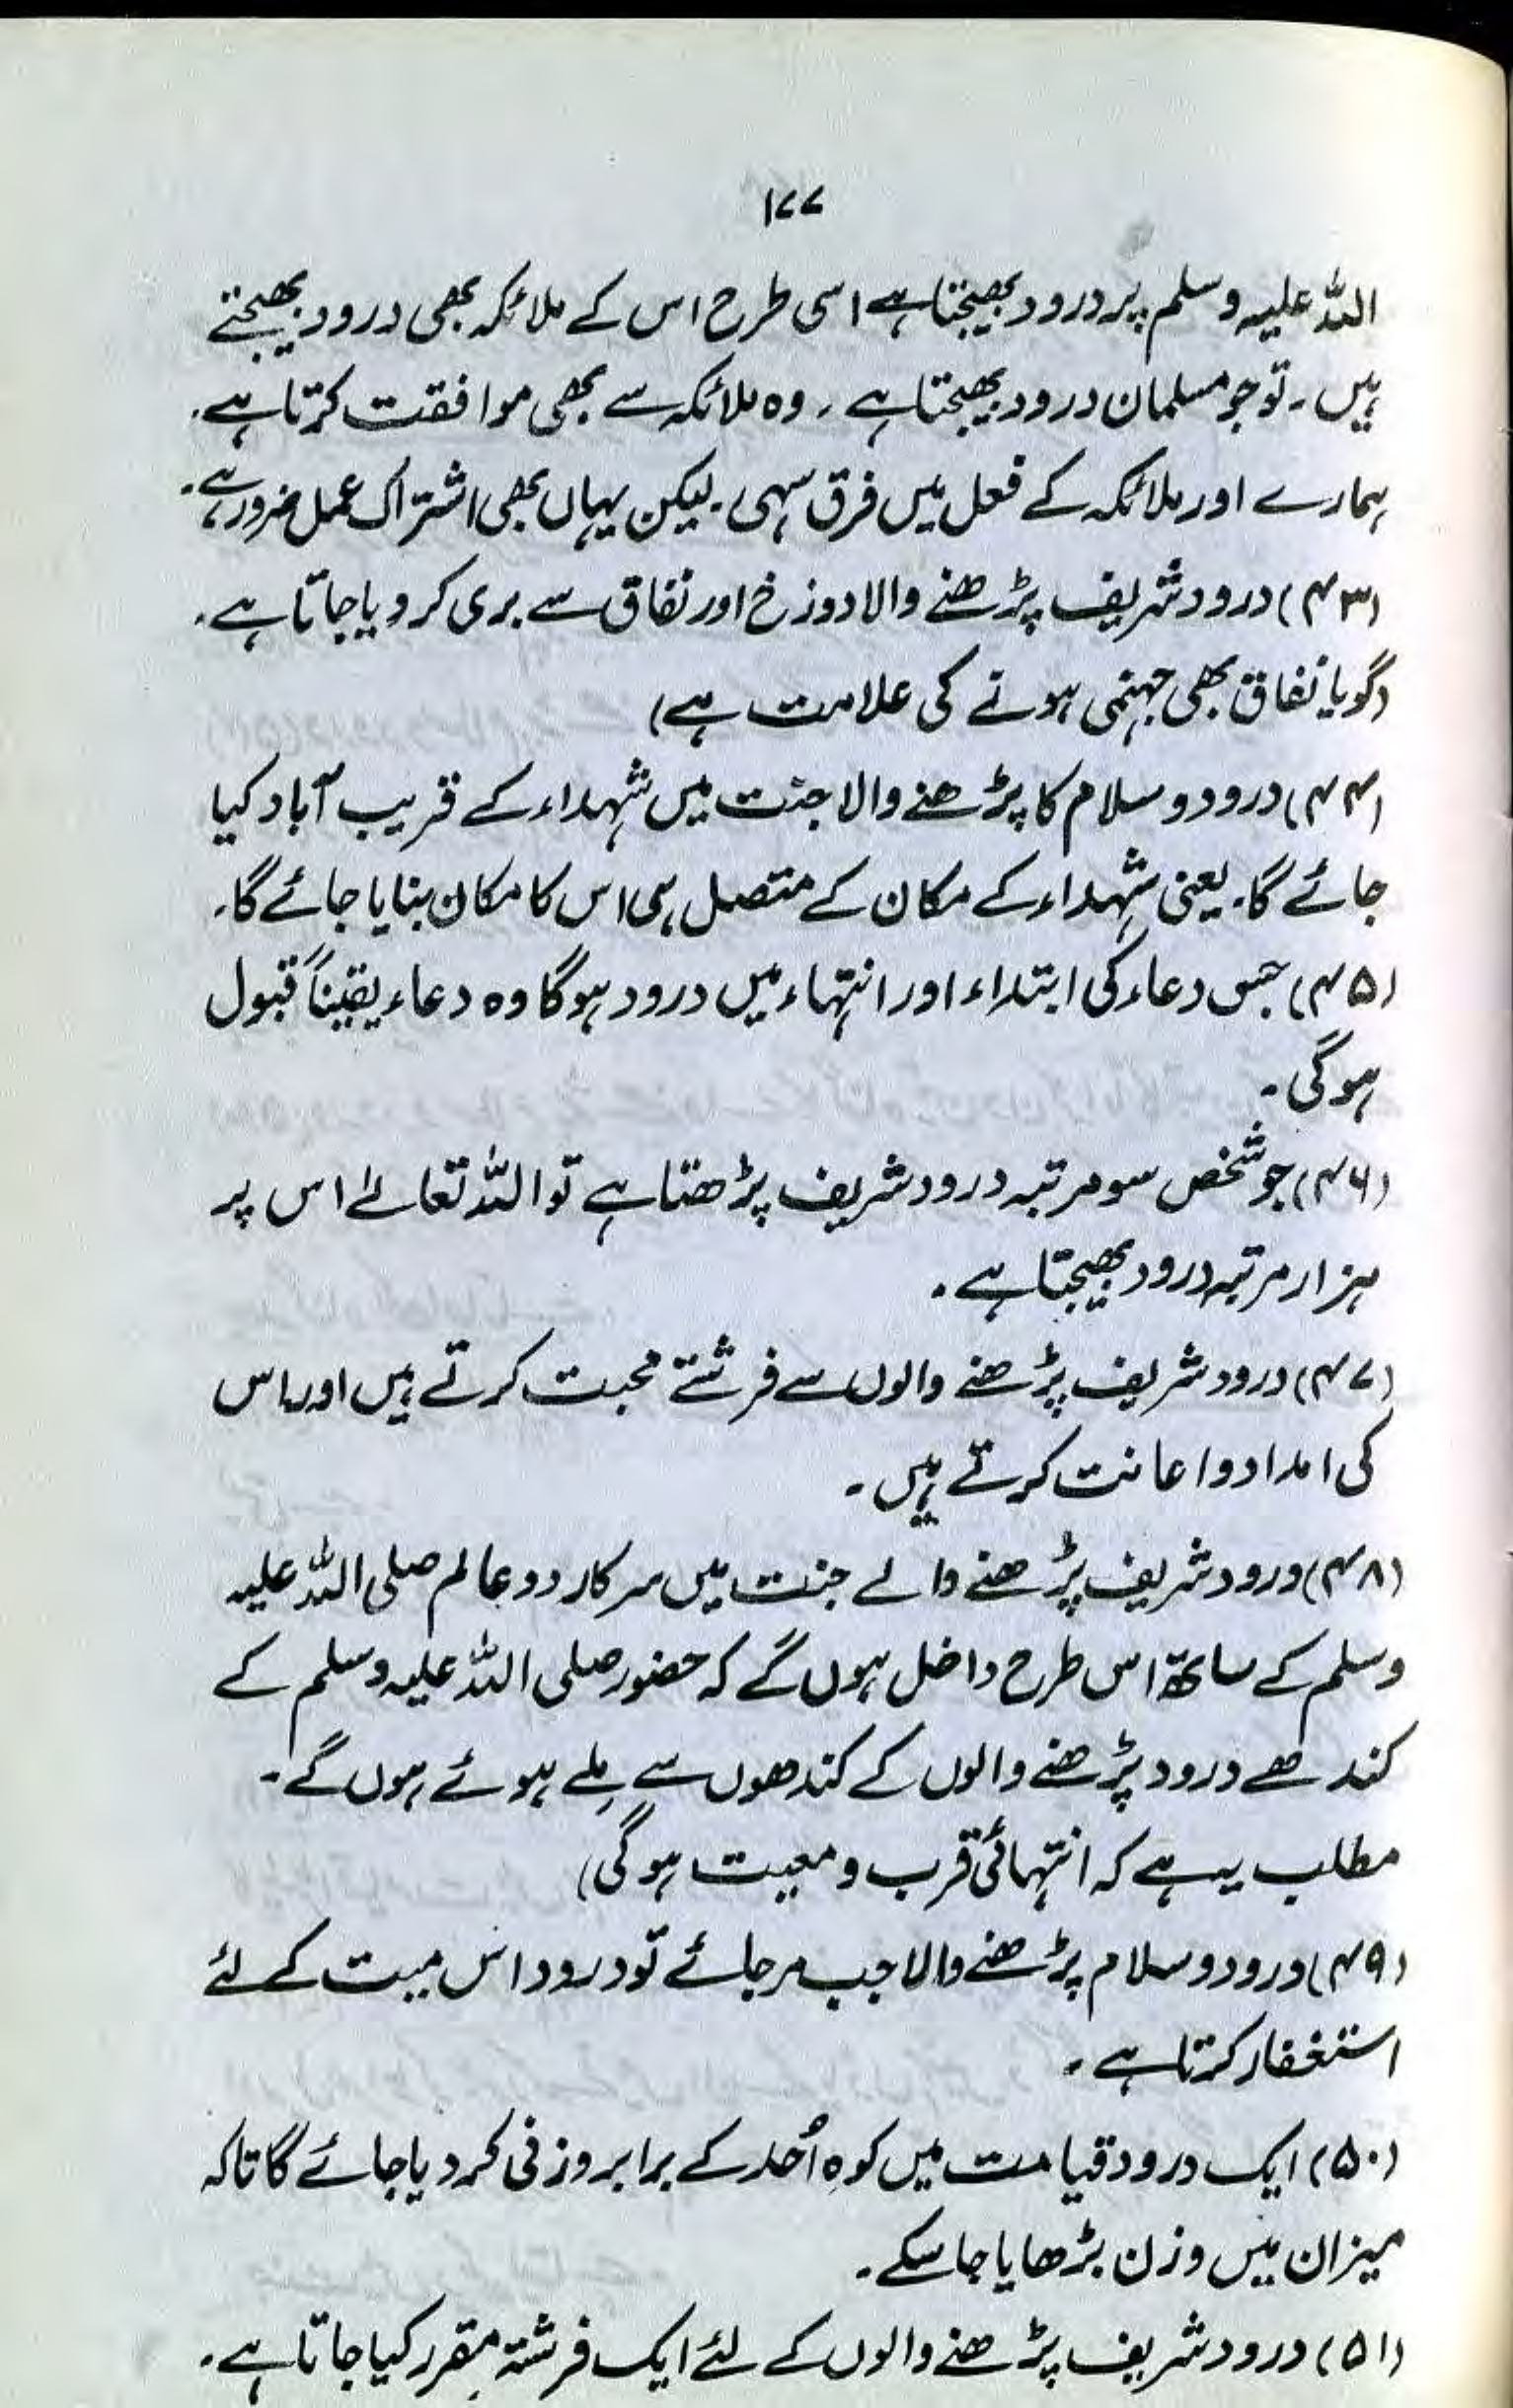 ۱۷۷
اللہ علیہ وسلم پر درود بھیجتا ہے اسی طرح اس کے ملائکہ بھی درود بھیجتے
ہیں۔ تو جو مسلمان درود بھیجتا ہے۔ وہ ملائکہ سے بھی موافقت کرتا ہے۔
ہمارے اور ملائکہ کے فعل میں فرق سہی۔ لیکن یہاں بھی اشتراک عمل ضرور ہے۔
(۴۳) درود شریف پڑھنے والا دوزخ اور نفاق سے بری کر دیا جاتا ہے۔
(گویا نفاق بھی جہنمی ہونے کی علامت ہے)
(۴۴) درود و سلام کا پڑھنے والا جنت میں شہداء کے قریب آباد کیا
جائے گا۔ یعنی شہداء کے مکان کے متصل ہی اس کا مکان بنایا جائے گا۔
(۴۵) جس دعاء کی ابتداء اور انتہاء میں درود ہوگا وہ دعاء یقیناً قبول
ہوگی۔
(۴۶) جو شخص سو مرتبہ درود شریف پڑھتا ہے تو اللہ تعالےٰ اس پر
ہزار مرتبہ درود بھیجتا ہے۔
(۴۷) درود شریف پڑھنے والوں سے فرشتے محبت کرتے ہیں اور اس
کی امداد و اعانت کرتے ہیں۔
(۴۸) درود شریف پڑھنے والے جنت میں سرکار دو عالم صلی اللہ علیہ
وسلم کے ساتھ اس طرح داخل ہوں گے کہ حضور صلی اللہ علیہ وسلم کے
کندھے درود پڑھنے والوں کے کندھوں سے مِلے ہوئے ہوں گے۔
مطلب یہ ہے کہ انتہائی قرب و معیت ہوگی)
(۴۹) درود و سلام پڑھنے والا جب مر جائے تو درود اس میت کے لئے
استغفار کرتا ہے۔
(۵۰) ایک درود قیامت میں کوہِ اُحد کے برابر وزنی کر دیا جائے گا تاکہ
میزان میں وزن بڑھایا جا سکے۔
(۵۱) درود شریف پڑھنے والوں کے لئے ایک فرشتہ مقرر کیا جاتا ہے۔